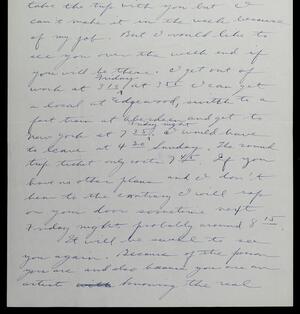 take the trip with you but I
can't make it in the week because
of my job. But I would like to
see you over the week end if
you will be there. I get out of
work at 3 15 Friday, at 3 I can get
a local at Edgewood, switch to a
fast train at Aberdeen and get to
New York at 7 35 Friday night. I would have
to leave at 4 30 Sunday. The round
trip ticket only costs 7 45. If you
have no other plans and I don't
hear to the contrary I will rap
on your door sometime next
Friday night probably around 8 15.
It will be swell to see
you again. Because of the person
you are and also because you are an
artist knowing the real